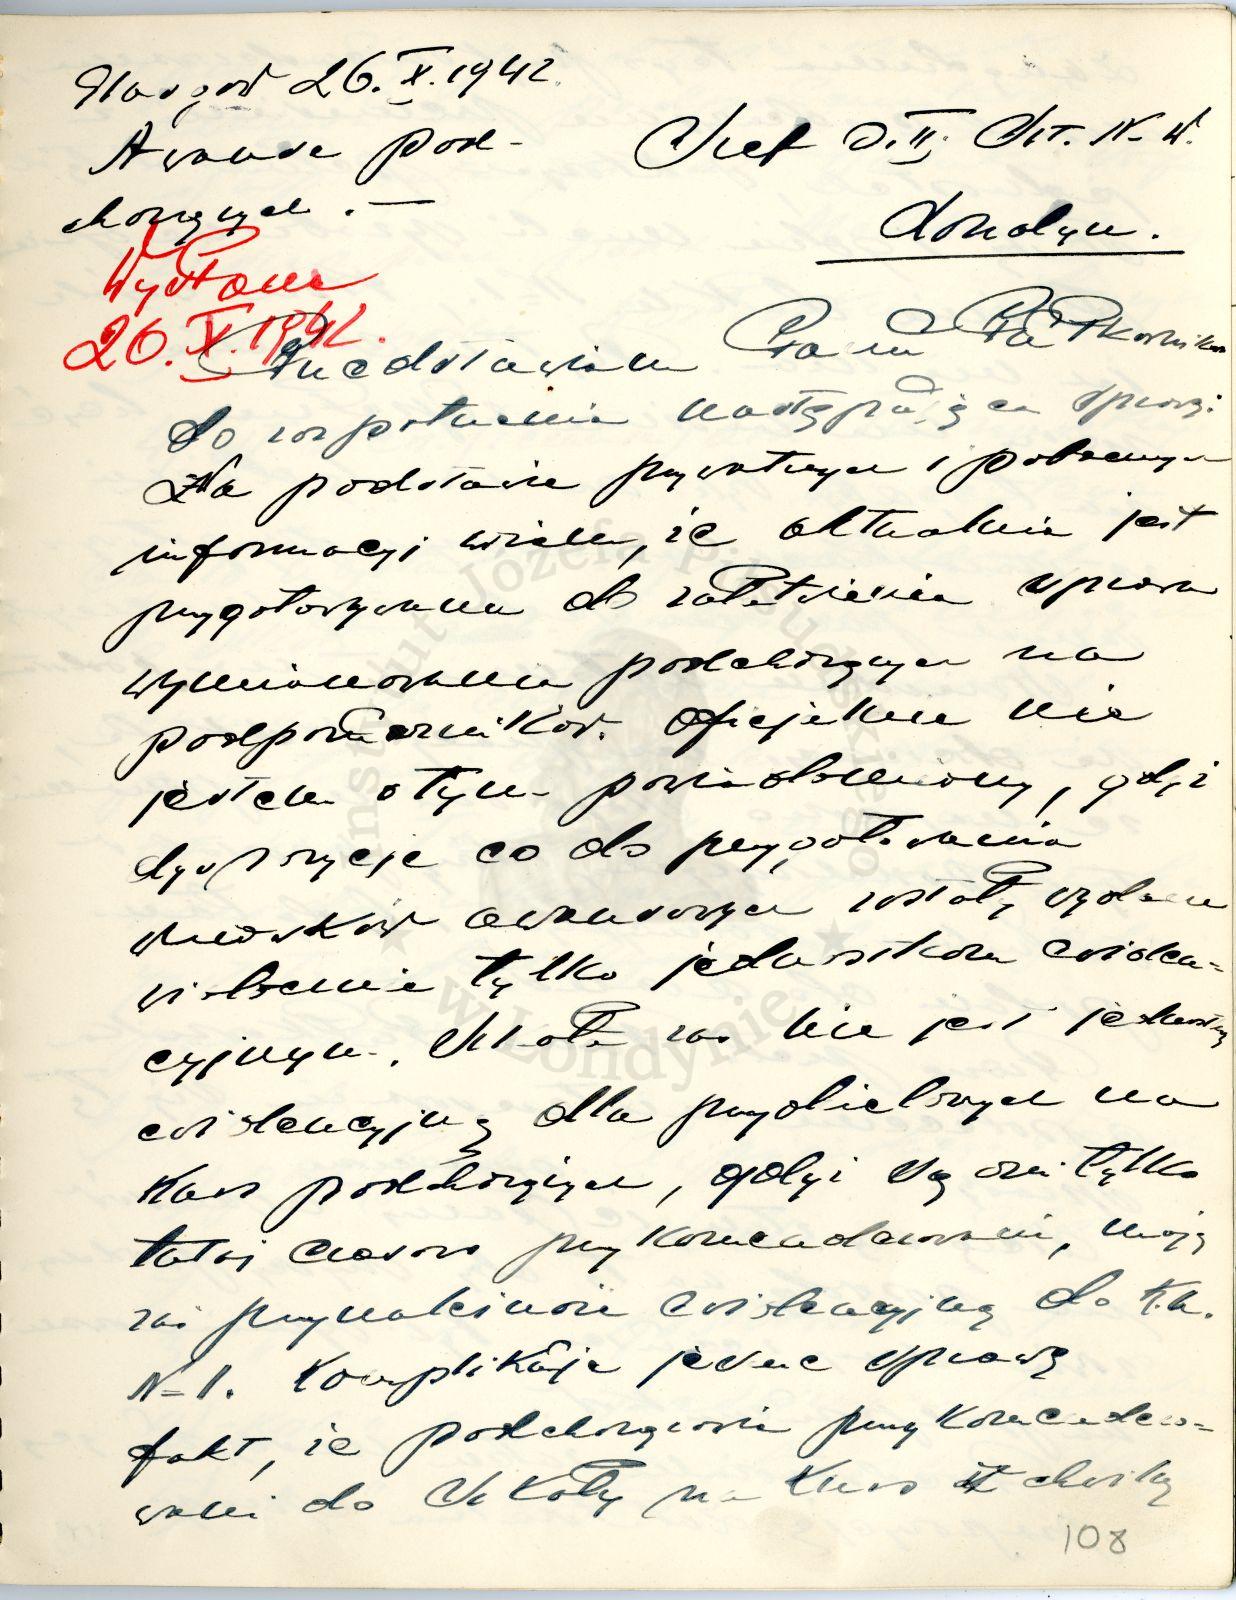 Glasgow 26.X.1942.
Awanse pod-
chorążych. —
Szef O.II. Szt. N. W.
Londyn.
Wysłane
26.X.1942.
Przedstawiam Panu Pułkownikowi
do rozpatrzenia następującą sprawę:
Na podstawie prywatnych i pobocznych
informacyj wiem, że aktualnie jest
przygotowywana do załatwienia sprawa
wymianowania podchorążych na
podporuczników. Oficjalnie nie
jestem o tym powiadomiony, gdyż
dyspozycje co do przygotowania
wniosków awansowych zostały wydane
widocznie tylko jednostkom ewiden-
cyjnym. Szkoła zaś nie jest jednostką
ewidencyjną dla przydzielonych na
kurs podchorążych, gdyż są oni tylko
tutaj czasowo przykomenderowani, mają
zaś przynależność ewidencyjną do K.A.
N-1. Komplikuje jeszcze sprawę
fakt, że podchorążowie przykomendero-
wani do Szkoły na kurs z chwilą
108
Instytut Józefa Piłsudskiego
w Londynie